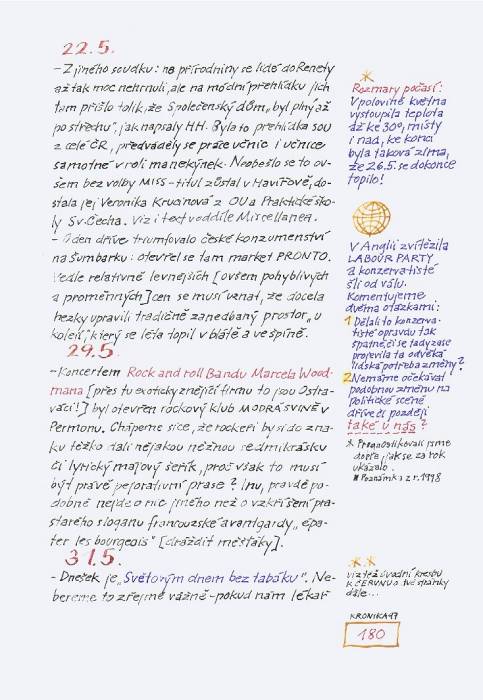 22.5.
- Z jiného soudku: na přírodniny se lidé do Renety
až tak moc nehrnuli, ale na módní přehlídku jich
tam přišlo tolik, že Společenský dům „byl plný až
po střechu", jak napsaly HH. Byla to přehlídka SOU
z celé ČR, předváděly se práce učnic i učnice
samotné v roli manekýnek. Neobešlo se to ov-
šem bez volby MISS - titul zůstal v Havířově, do-
stala jej Veronika Krucinová z OU a Praktické ško-
ly Sv. Čecha. Viz i text v oddíle Miscellanea.
- O den dříve triumfovalo české konzumenství
na Šumbarku: otevřel se tam market PRONTO.
Vedle relativně levnějších [ovšem pohyblivých
a proměnných] cen se musí uznat, že docela
hezky upravili tradičně zanedbaný prostor „u
kolejí", který se léta topil v blátě a ve špíně.
29.5.
- Koncertem Rock and roll Bandu Marcela Wood-
mana [přes tu exoticky znějící firmu to jsou Ostra-
váci!] byl otevřen rockový klub MODRÁ SVINĚ v
Permonu. Chápeme sice, že rockeři by si do zna-
ku těžko dali nějakou něžnou sedmikrásku
či lyrický májový šeřík, proč však to musí
být právě pejorativní prase? Inu, pravdě po-
dobně nejde o nic jiného než o vzkříšení pra-
starého sloganu francouzské avantgardy „épa-
ter les bourgeois" [dráždit měšťáky].
31.5.
- Dnešek je „Světovým dnem bez tabáku". Ne-
bereme to zřejmě vážně - pokud nám lékař
*
Rozmary počasí:
V polovině května
vystoupila teplota
až ke 30°, místy
i nad, ke konci
byla taková zima,
že 26.5. se dokonce
topilo!
V Anglii zvítězila
LABOUR PARTY
a konzervativisté
šli od válu.
Komentujeme
dvěma otázkami:
1 Dělali to konzerva-
tisté opravdu tak
špatně, či se tady zase
projevila ta odvěká
lidská potřeba změny?
2 Nemáme očekávat
podobnou změnu na
politické scéně
dříve či později
také u nás?
* Prognostikovali jsme
dobře, jak se za rok
ukázalo.
■ Poznámka z r. 1998
**
viz též úvodní kresbu
K ČERVNU o dvě stránky
dále...
KRONIKA 97
180